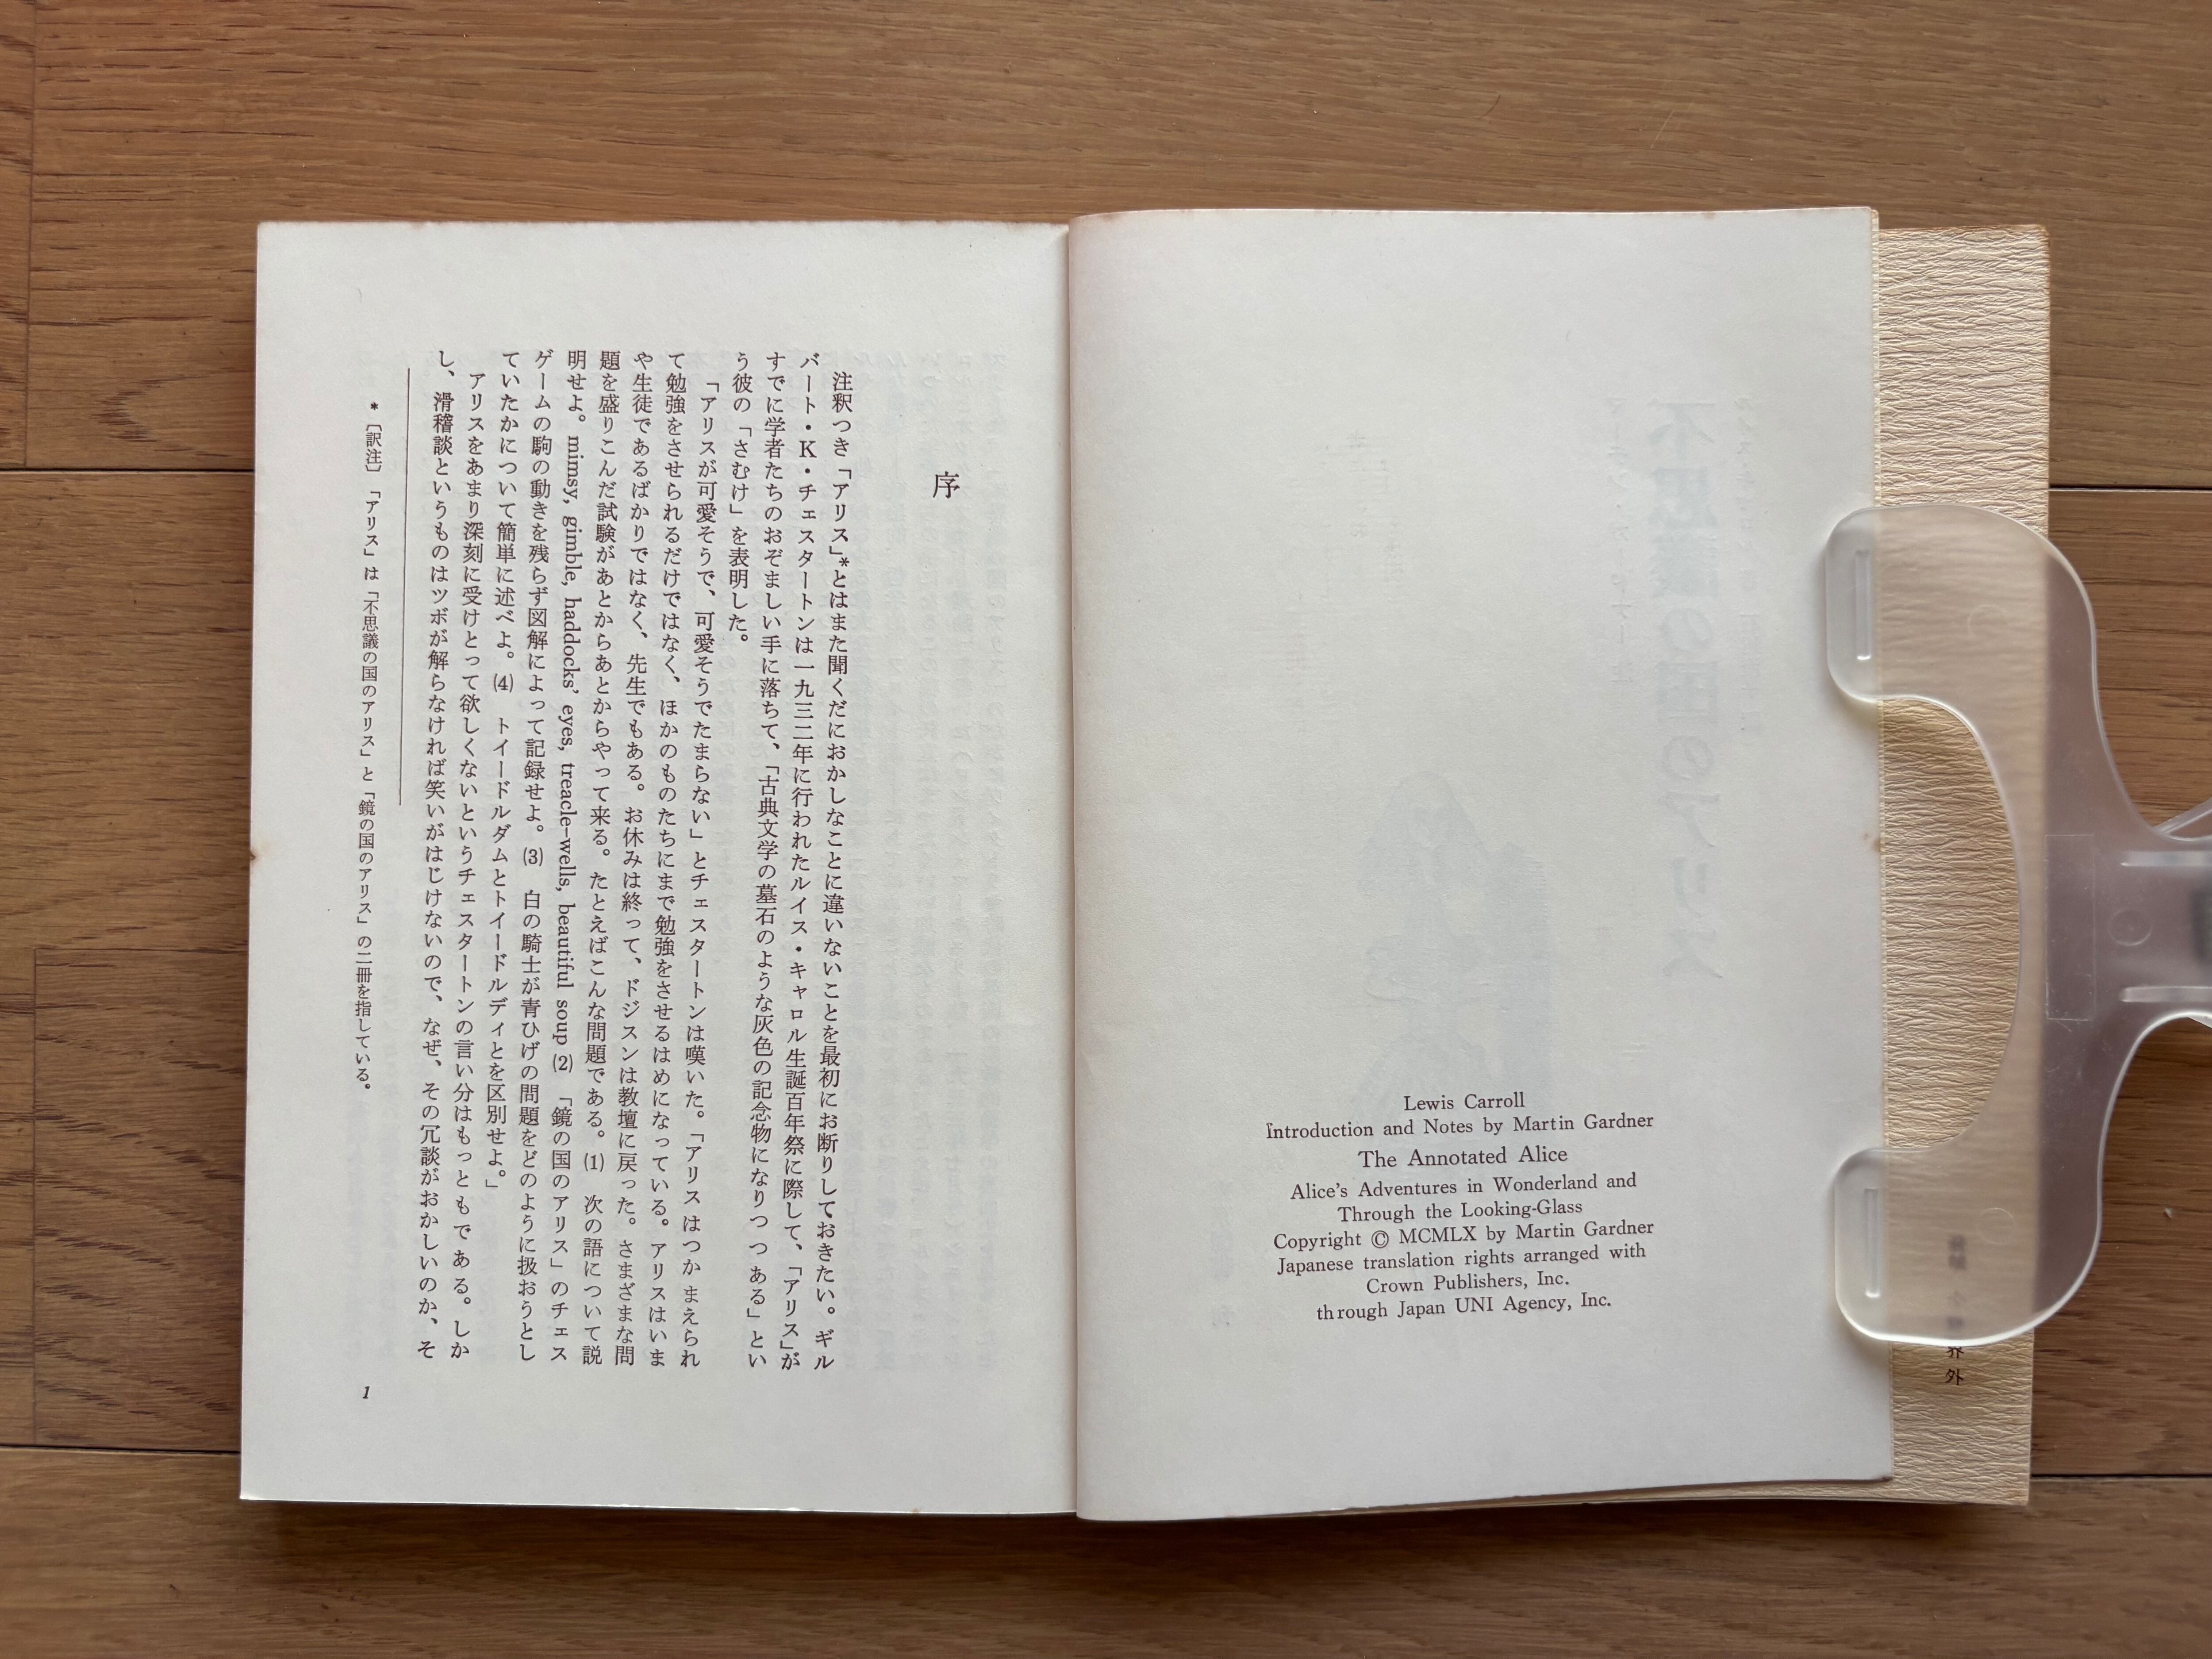 Lewis Carroll
Introduction and Notes by Martin Gardner
The Annotated Alice
Alice's Adventures in Wonderland and
Through the Looking-Glass
Copyright © MCMLX by Martin Gardner
Japanese translation rights arranged with
Crown Publishers, Inc.
through Japan UNI Agency, Inc.
界外
序
注釈つき「アリス」*とはまた聞くだにおかしなことに違いないことを最初にお断りしておきたい。ギル
バート・K・チェスタートンは一九三二年に行われたルイス・キャロル生誕百年祭に際して、「アリス」が
すでに学者たちのおぞましい手に落ちて、「古典文学の墓石のような灰色の記念物になりつつある」とい
う彼の「さむけ」を表明した。
「アリスが可愛そうで、可愛そうでたまらない」とチェスタートンは嘆いた。「アリスはつかまえられ
て勉強をさせられるだけではなく、ほかのものたちにまで勉強をさせるはめになっている。アリスはいま
や生徒であるばかりではなく、先生でもある。お休みは終って、ドジスンは教壇に戻った。さまざまな問
題を盛りこんだ試験があとからあとからやって来る。たとえばこんな問題である。(1) 次の語について説
明せよ。mimsy, gimble, haddocks' eyes, treacle-wells, beautiful soup (2) 「鏡の国のアリス」のチェス
ゲームの駒の動きを残らず図解によって記録せよ。(3) 白の騎士が青ひげの問題をどのように扱おうとし
ていたかについて簡単に述べよ。(4) トイードルダムとトイードルディとを区別せよ。」
アリスをあまり深刻に受けとって欲しくないというチェスタートンの言い分はもっともである。しか
し、滑稽談というものはツボが解らなければ笑いがはじけないので、なぜ、その冗談がおかしいのか、そ
*〔訳注〕「アリス」は「不思議の国のアリス」と「鏡の国のアリス」の二冊を指している。
1